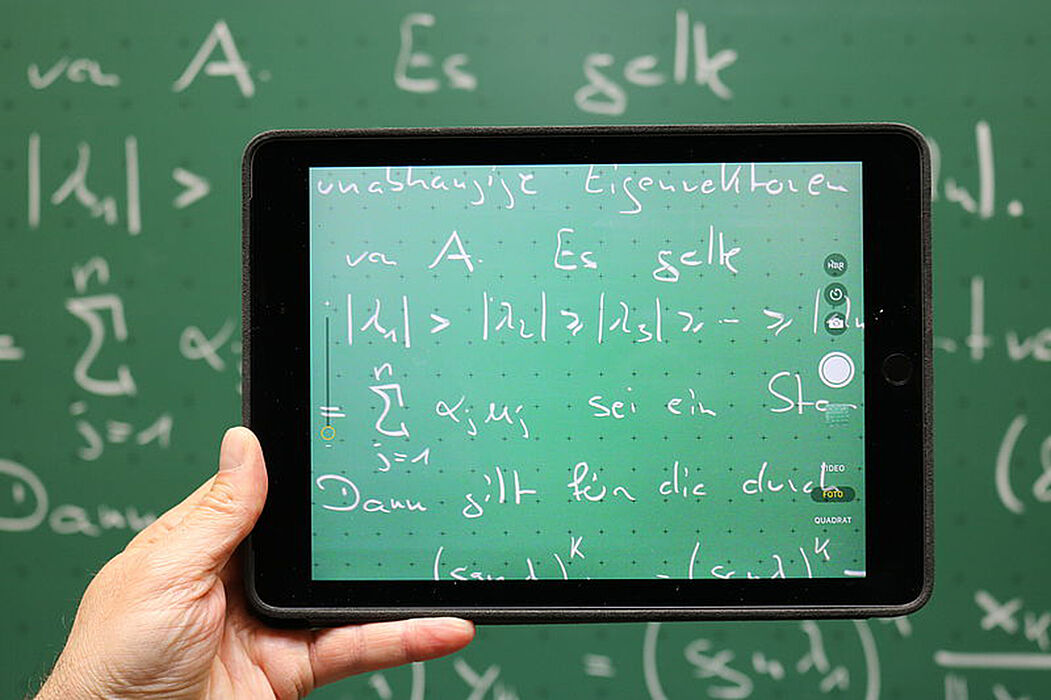 von A. Es gelte
|λ₁| >
n
= Σ α
j=1
Dann
unabhängige Eigenvektoren
von A. Es gelte
|λ₁| > |λ₂| ≥ |λ₃| ≥ - ≥ |λn
n
= Σ αⱼuⱼ sei ein Sta
j=1
Dann gilt für die durch
(sgn λ)ᴷ = (sgn λ)ᴷ -
HDR
VIDEO
FOTO
QUADRAT
= (sgn λ₁)